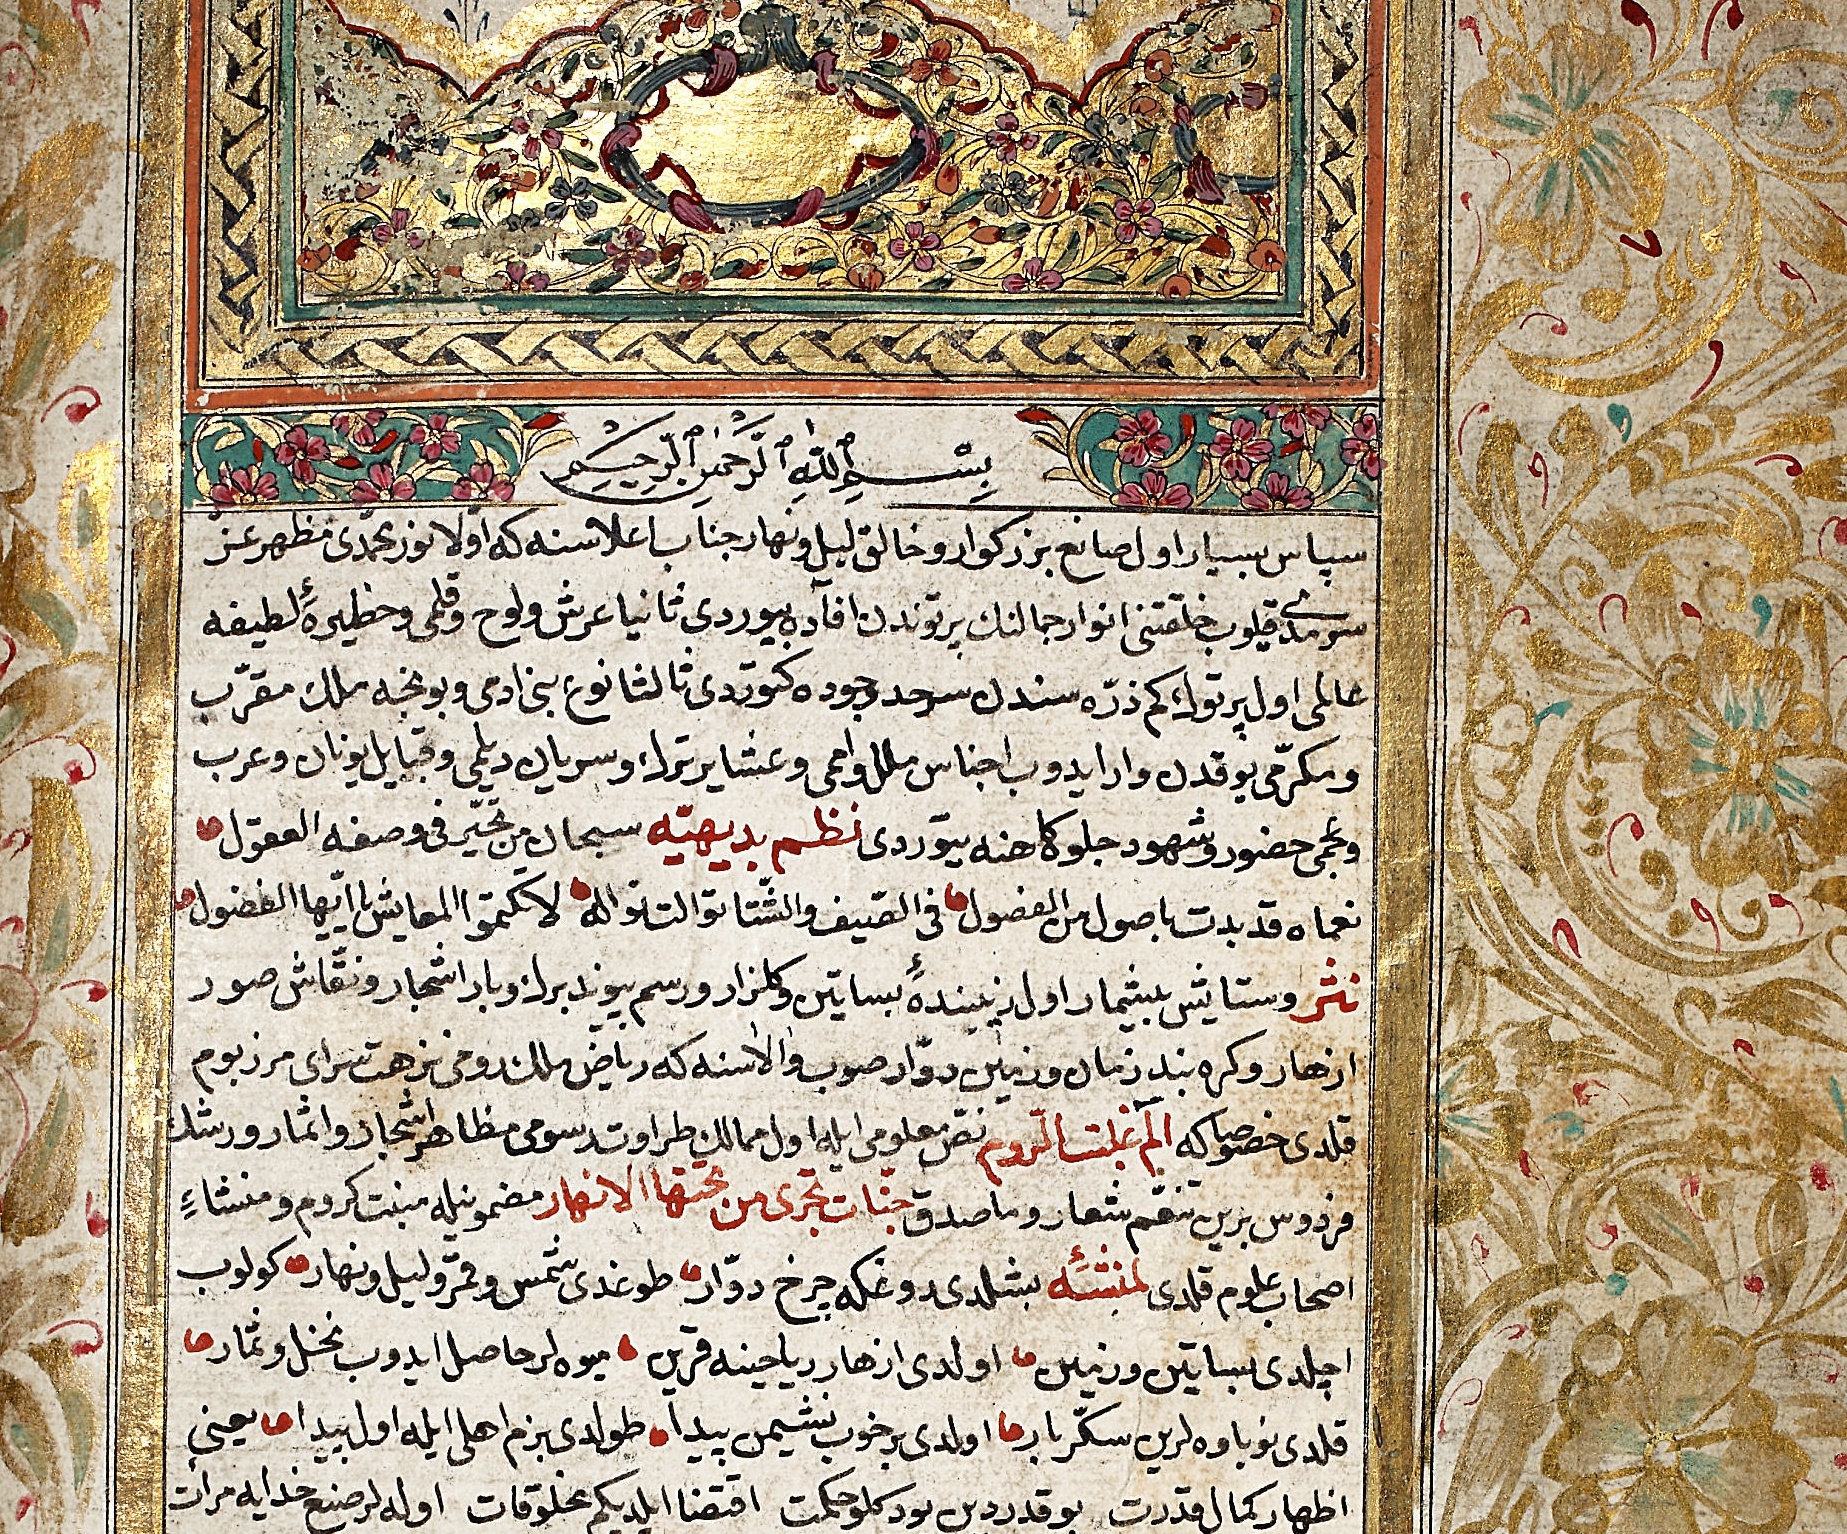 بسم الله الرحمن الرحيم
سپاس بسیار اول صانع بزرکوار و خالق لیل ونهار جناب اعلاسنه که اولا نور محمدی مظهر عز
سرمدی قیلوب خلقتنی انوار جمالنك پرتوندن افاده بیوردی ثانیا عرش ولوح وقلمی وحظیرهٔ لطیفه
عالمی اول پرتوك کم ذره سندن سرحد وجوده کتوردی ثالثا نوع بنی ادمی و بونجه ملك مقرب
ومکرمی یوقدن وار ایدوب اجناس ملل واممی وعشایر ترك وسریان دیلمی وقبایل یونان وعرب
وعجمی حضور وشهود جلوه کاهنه بیوردی نظم بدیهیه سبحان من تحیر فی وصفه العقول
نعماه قد بدت باصول من الفضول فی الصیف والشتا توالت نواله لا تکتموا المعایش یا ایها الفضول
نثر وستایش بیشمار اول زیبندهٔ بساتین وکلزار ورسم پیوند برك وبار اشجار ونقاش صور
ازهار وکره بند زمان وزمین دوار صوب والاسنه که ریاض ملك رومی نزهت سرای مرزبوم
قلدی خصوصا که الم غلبت الروم نص معلومی ایله اول ممالك طراوت رسومی مظاهر اشجار واثمار ورشك
فردوس برین تنعم شعار وما صدق جنات تجری من تحتها الانهار مضمونیله منبت کروم ومنشاء
اصحاب علوم قلدی لمنشئه بشلدی دوغکه چرخ دوار طوغدی شمس وقمر ولیل ونهار کولوب
اچلدی بساتین وزمین اولدی ازهار ریاحینه قرین میوه لر حاصل ایدوب نخل وثمار
قلدی نوباوه لرین سکر بار اولدی بر خوب نشیمن پیدا طولدی بزم اهلی ایله اول بیدا یعنی
اظهار کمال قدرت بو قدر دین بود کلو حکمت اقتضا ایلدیکم مخلوقات اوله لر صنع خدایه مرآت